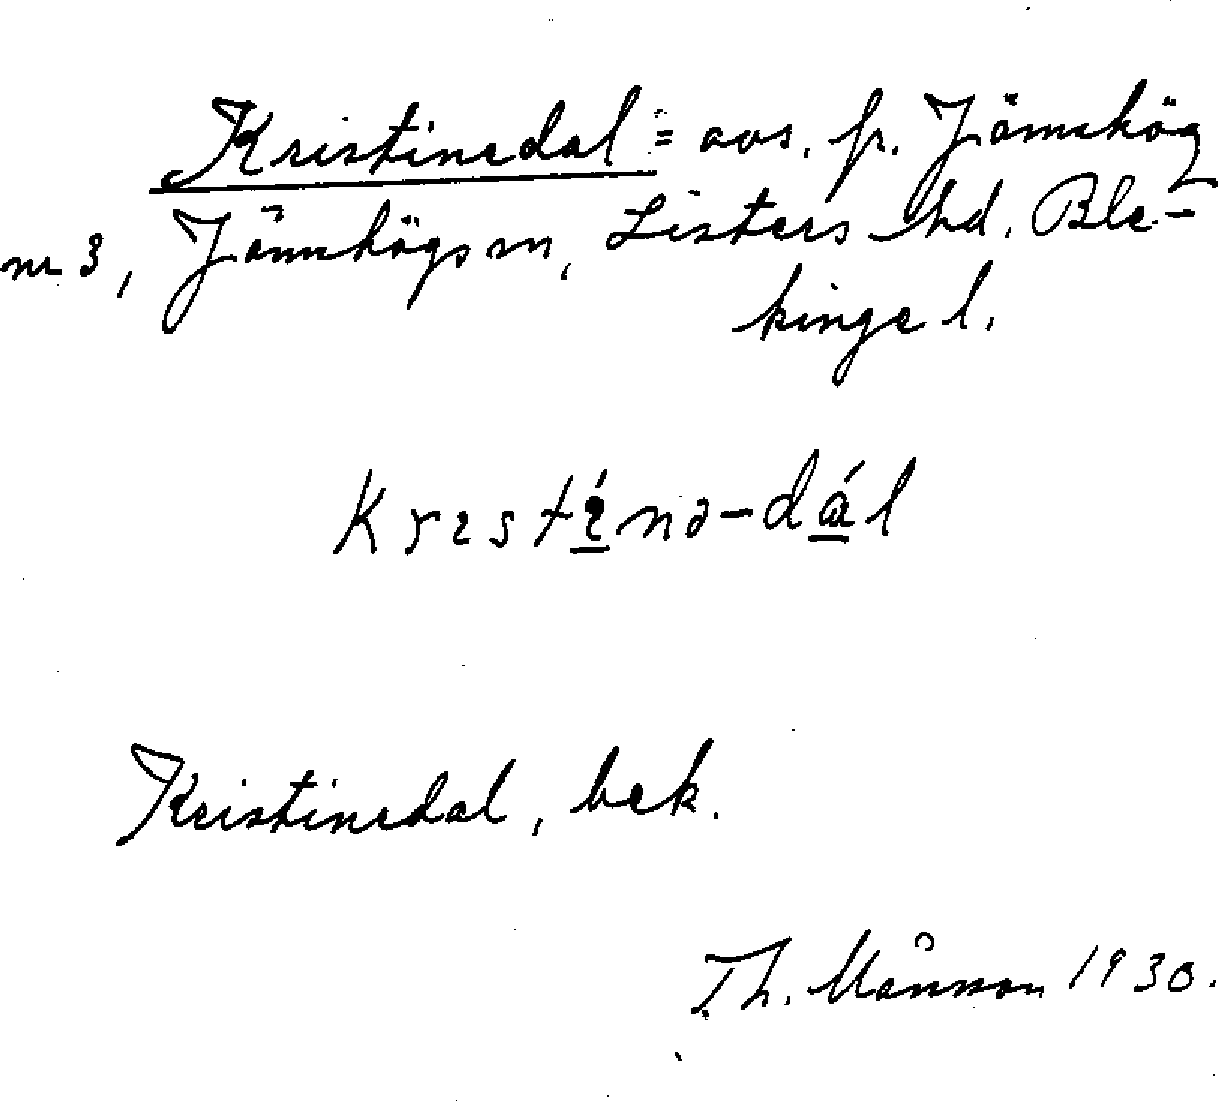 Kristinedal = avs. fr. Jämshög
nr 3, Jämshögs sn, Listers hd. Ble-
kinge l.
Krıstı́nə-dɑ́l
Kristinedal, bek.
Th. Månsson 1930.